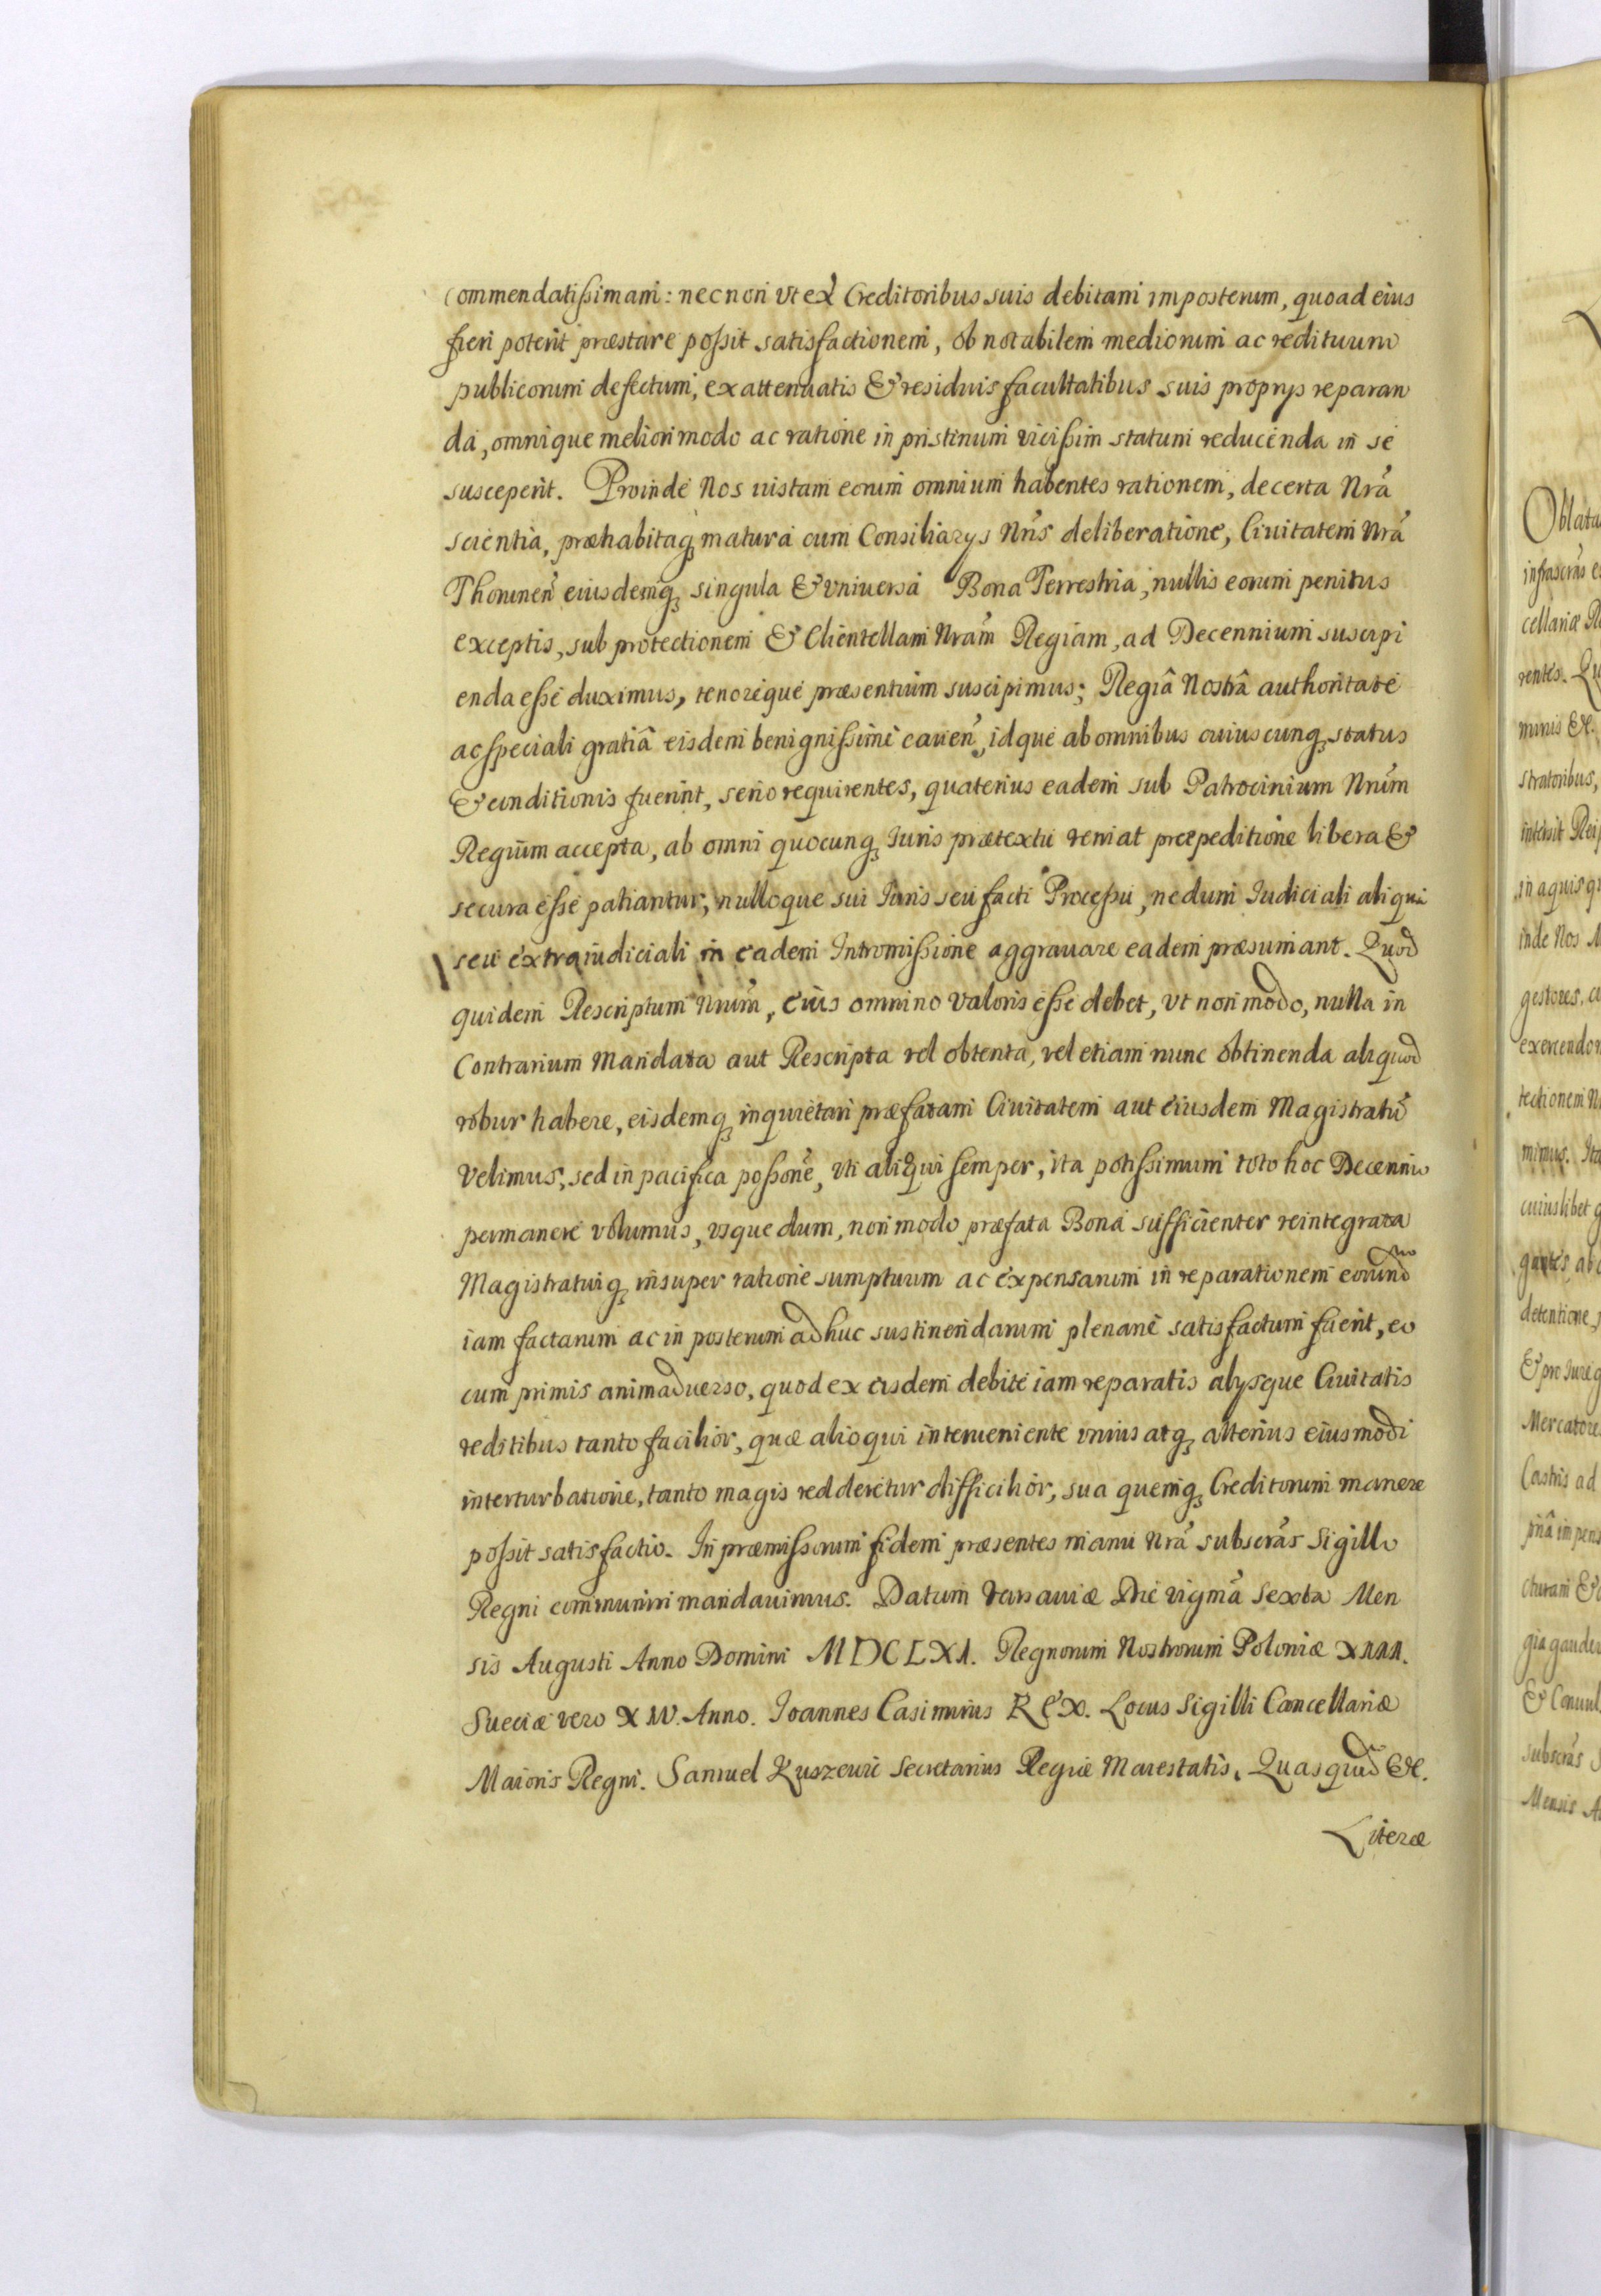 commendatißimam: necnon vt ex Creditoribus suis debitam imposterum, quoad eius
fieri poterit præstare poßit satisfactionem, ob notabilem mediorum ac redituum
publicorum defectum, ex attenuatis & residuis facultatibus suis proprijs reparan
da, omnique meliori modo ac ratione in pristinum vicißim statum reducenda in se
susceperit. Proinde Nos iustam eorum omnium habentes rationem, de certa Nrã
scientia, præhabitaq matura cum Consiliarijs Nrĩs deliberatione, Ciuitatem Nrã
Thorunen̄ eiusdemq singula & vniuersa Bona Terrestria, nullis eorum penitus
exceptis, sub protectionem & Clientellam Nrãm Regiam, ad Decennium suscipi
enda eße duximus, tenoreque præsentium suscipimus; Regiâ Nostrâ authoritate
ac speciali gratiâ eisdem benignißime cauen̄, idque ab omnibus cuiuscunq status
& conditionis fuerint, serio requirentes, quatenus eadem sub Patrocinium Nrũm
Regium accepta, ab omni quocunq Iuris prætextu veniat præpeditione libera &
secura eße patiantur, nulloque sui Iuris seu facti Proceßu, nedum Iudiciali aliqua
seu extraiudiciali in eadem Intromißione aggrauare eadem præsumant. Quod
quidem Rescriptum Nrũm, eius omnino valoris eße debet, vt non modo, nulla in
Contrarium Mandata aut Rescripta vel obtenta, vel etiam nunc obtinenda aliquod
robur habere, eisdemq inquietari præfatam Ciuitatem aut eiusdem Magistratũ
velimus, sed in pacifica poßonẽ, vti aliqui semper, ita potißimum toto hoc Decennio
permanere volumus, vsque dum, non modo præfata Bona sufficienter reintegrata
Magistratuiq insuper ratione sumptuum ac expensarum in reparationem eorund
iam factarum ac in posterum adhuc sustinendarum plenarie satisfactum fuerit, eo
cum primis animaduerso, quod ex eisdem debite iam reparatis alijsque Ciuitatis
reditibus tanto facilior, quæ alioqui interueniente vnius atq alterius eiusmodi
interturbatione, tanto magis redderetur difficilior, sua quemq Creditorum manere
poßit satisfactio. In præmißorum fidem præsentes manu Nrã subscrãs Sigillo
Regni communiri mandauimus. Datum Varsauiæ Die vigmã sexta Men
sis Augusti Anno Domini MDCLXI. Regnorum Nostrorum Poloniæ XIII.
Sueciæ vero XIV. Anno. Ioannes Casimirus REX. Locus Sigilli Cancellariæ
Maioris Regni. Samuel Kuszewic Secretarius Regiæ Maiestatis. Quasquid &c.
Literæ